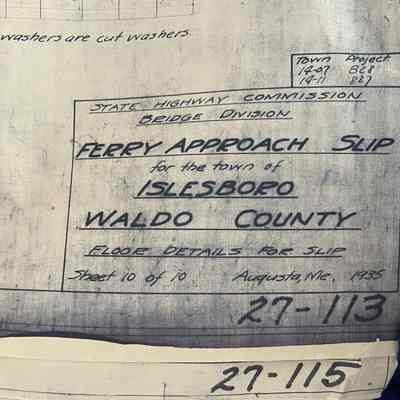 washers are cut washers.
Town Project
14-07 828
14-11 827
STATE HIGHWAY COMMISSION
BRIDGE DIVISION
FERRY APPROACH SLIP
for the town of
ISLESBORO
WALDO COUNTY
FLOOR DETAILS FOR SLIP
Sheet 10 of 10 Augusta, Me. 1935
27-113
27-115